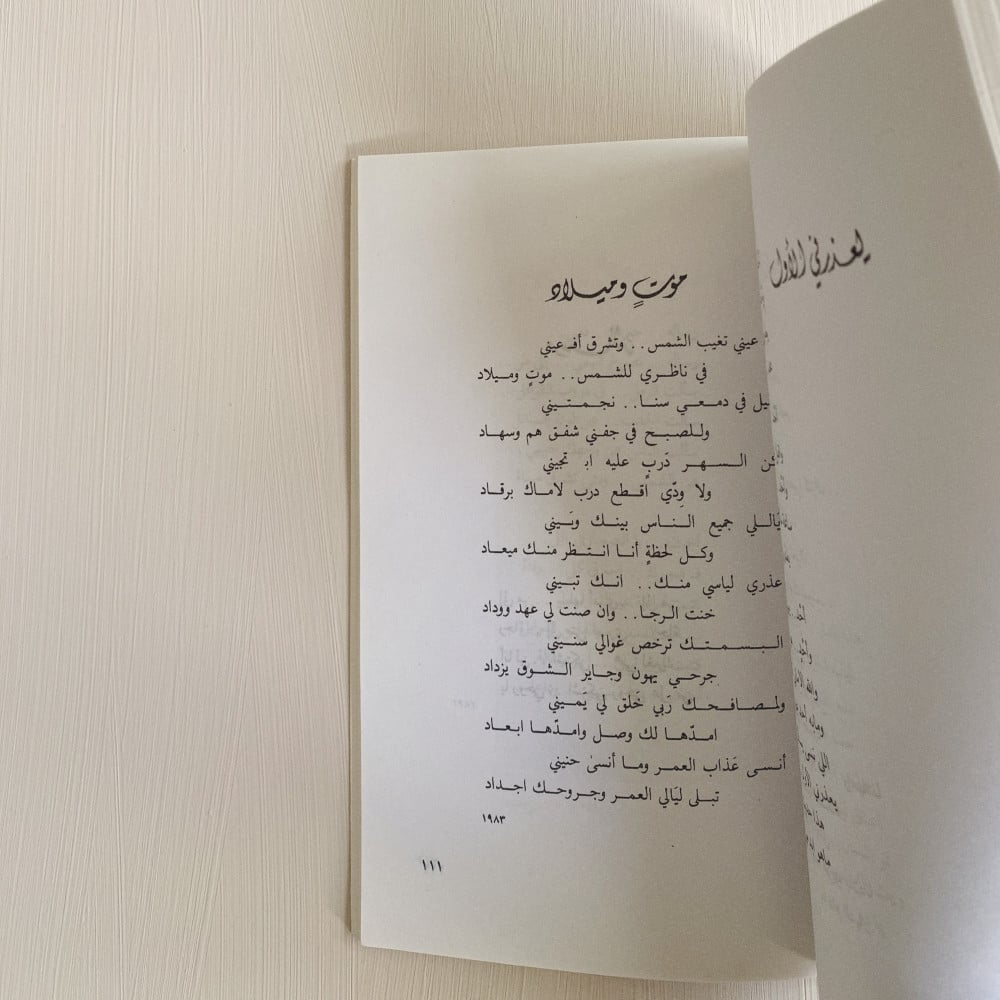 موتٍ وميلاد
عيني تغيب الشمس.. وتشرق أفـ عيني
في ناظري للشمس.. موتٍ وميلاد
في دمعـي سنا.. نجمـتـيني
وللصبح في جفني شفق هم وسهاد
السهر دَربٍ عليه ابـ تجيني
ولا وِدّي أقطع درب لاماك برقاد
يَاللي جميع الناس بينك وبَيني
وكل لحظةٍ أنا انتظر منك ميعاد
عذري لياسي منك.. انك تبيني
خنت الرجا.. وان صنت لي عهد ووداد
البسمتك ترخص غوالي سنيني
جرحي يهون وجاير الشوق يزداد
ولمصافحك رَبي خَلق لي يَميني
امدّها لك وصل وامدّها ابعاد
أنسى عَذاب العمر وما أنسىٰ حنيني
تبلى ليَالي العمر وجروحك اجداد
١٩٨٣
١١١
يعذرني الأول